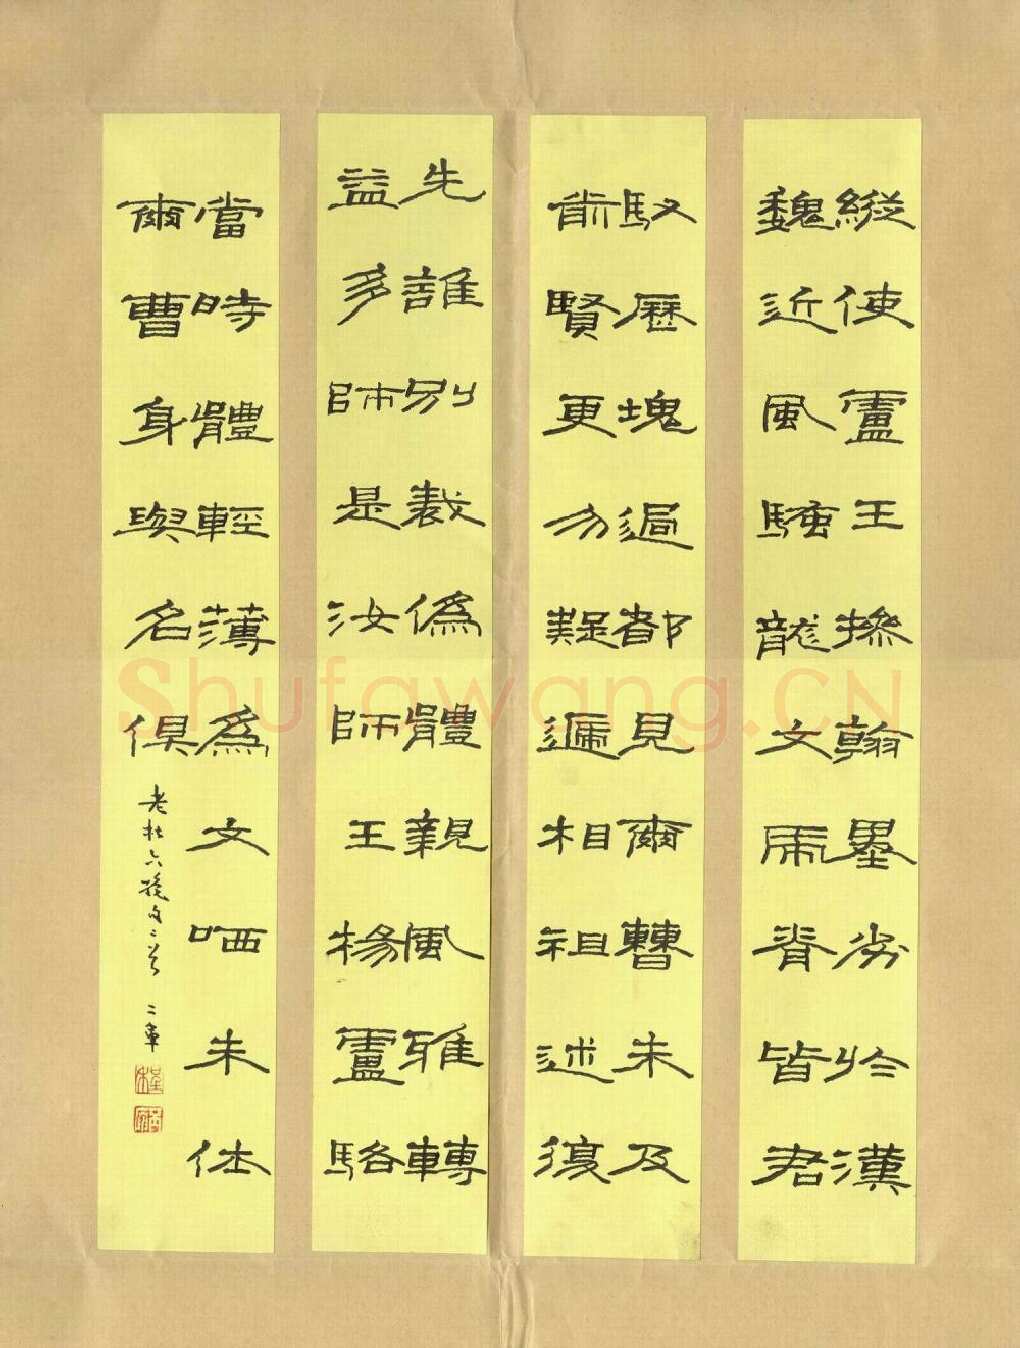 縱使盧王操翰墨劣於漢
魏近風騷龍文虎脊皆君
馭歷塊過都見爾曹未及
前賢更勿疑遞相祖述復
先誰別裁僞體親風雅轉
益多師是汝師王楊盧駱
當時體輕薄爲文哂未休
爾曹身與名俱
老杜六绝句二首 二章
Shufawang.CN